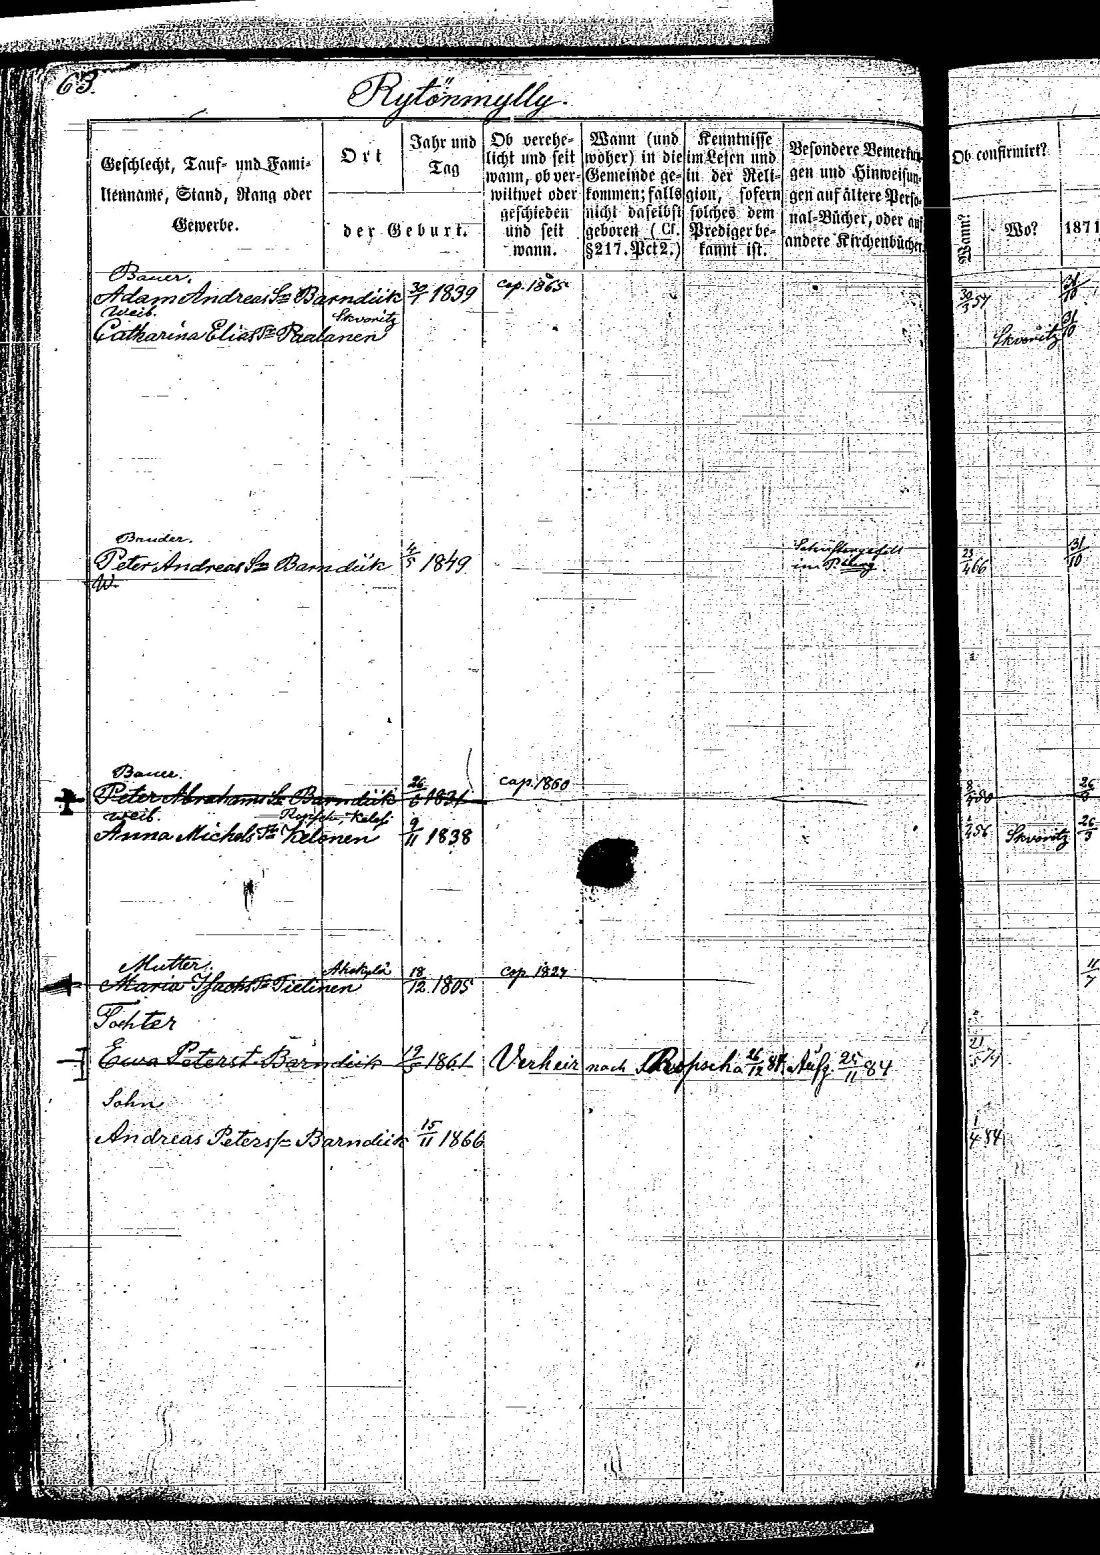 63.
Rytönmylly.
Geschlecht, Tauf- und Fami-
lienname, Stand, Rang oder
Gewerbe.
Ort
Jahr und
Tag
der Geburt.
Ob verehe-
licht und seit
wann, ob ver-
wittwet oder
geschieden
und seit
wann.
Wann (und
woher) in die
Gemeinde ge-
kommen; falls
nicht daselbst
geboren (Cf.
§217. Pct 2.)
Kenntnisse
im Lesen und
in der Reli-
gion, sofern
solches dem
Prediger be-
kannt ist.
Besondere Bemerkun-
gen und Hinweisun-
gen auf ältere Perso-
nal-Bücher, oder auf
andere Kirchenbücher.
Ob confirmirt?
Wann?
Wo?
1871
Bauer.
Adam Andreas Sn Barndük 30/1 1839 cop. 1865 30/3 57 31/10
Weib. Skworitz
Catharina Elias Tr Paalanen Skworitz 31/10
Bruder.
Peter Andreas Sn Barndük 4/5 1849 im 23/4 66 31/10
W.
Bauer.
Peter Abrahams Sn Barndük 26/6 1831 cop. 1860 26/3
Weib.
Anna Michels Tr Kelonen 9/11 1838 56 Skworitz 26/3
Mutter.
Maria Isachs Tr Tielinen 18/12 1805 cop. 1827 11/7
Tochter
Ewa Peterst. Barndük 1861 Verheir nach Ropscha 26/12 84 Aufg. 25/11 84
Sohn
Andreas Peters Barndük 15/11 1866 1/4 84